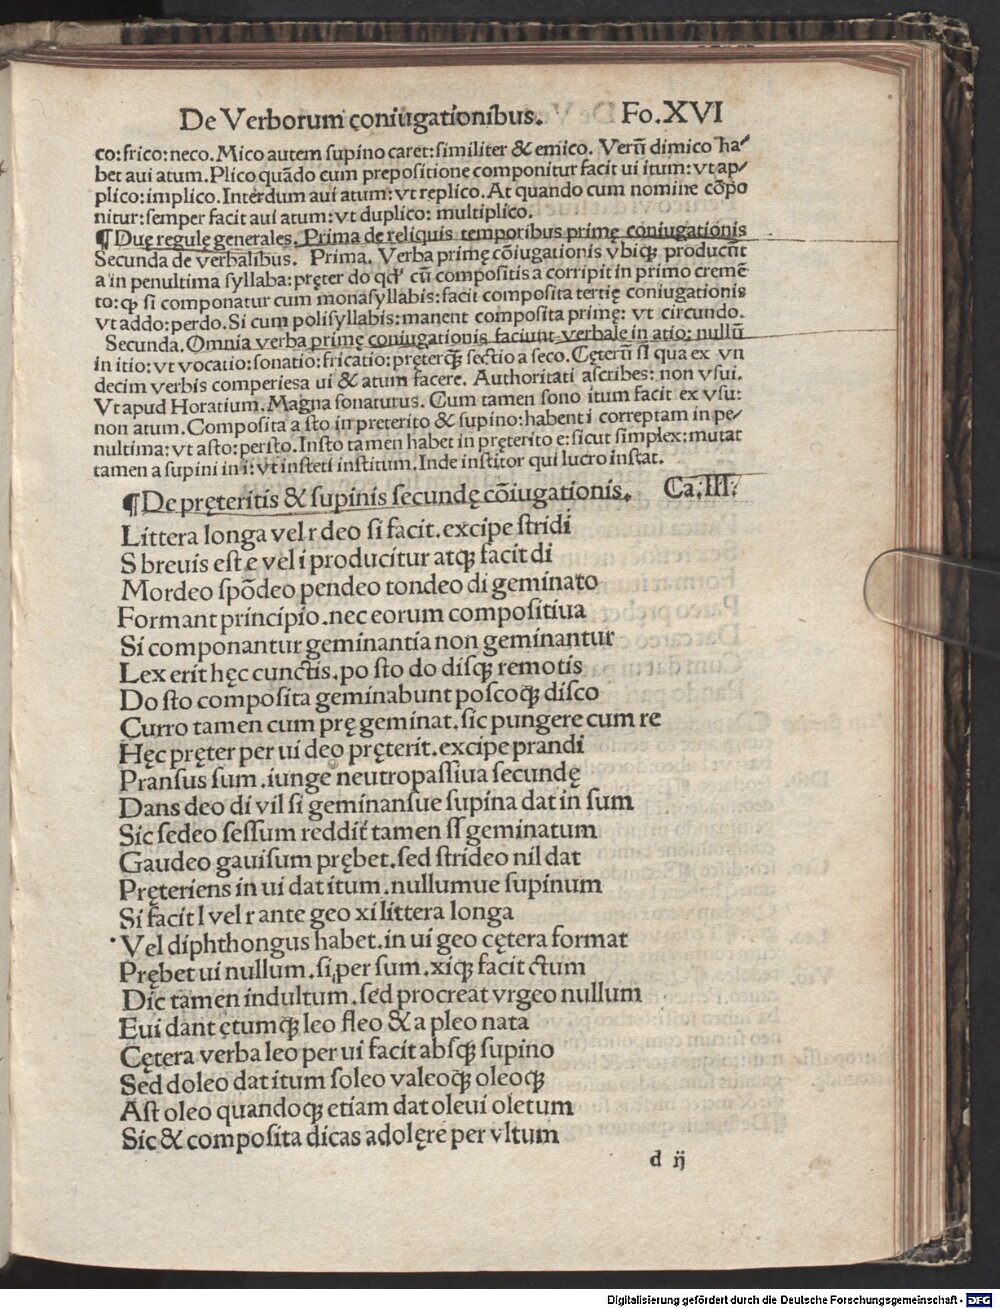 De Verborum coniugationibus. Fo.XVI
co:frico:neco.Mico autem ſupino caret:ſimiliter & emico. Verū dimico ha⸗
bet aui atum.Plico quādo cum prepoſitione componitur facit ui itum:vt ap⸗
plico:implico.Interdum aui atum:vt replico.At quando cum nomine cōpo
nitur:ſemper facit aui atum:vt duplico: multiplico.
¶Duę regulę generales. Prima de reliquis temporibus primę coniugationis
Secunda de verbalibus. Prima. Verba primę cōiugationis vbiqꝫ producūt
a in penultima ſyllaba:pręter do qd' cū compoſitis a corripit in primo cremē
to:qꝫ ſi componatur cum monaſyllabis:facit compoſita tertię coniugationis
vt addo:perdo.Si cum poliſyllabis:manent compoſita primę: vt circundo.
Secunda.Omnia verba primę coniugationis faciunt verbale in atio: nullū
in itio:vt vocatio:ſonatio:fricatio:pręterqꝫ̄ ſectio a ſeco.Cęterū ſi qua ex vn
decim verbis comperies a ui & atum facere. Authoritati aſcribes: non vſui.
Vt apud Horatium.Magna ſonaturus. Cum tamen ſono itum facit ex vſu:
non atum.Compoſita a ſto in preterito & ſupino:habent i correptam in pe⸗
nultima:vt aſto:perſto.Inſto tamen habet in pręterito e:ſicut ſimplex:mutat
tamen a ſupini in i:vt inſteti inſtitum.Inde inſtitor qui lucro inſtat.
¶De pręteritis & ſupinis ſecundę cōiugationis. Ca.III.
Littera longa vel r deo ſi facit.excipe ſtridi
S breuis eſt e vel i producitur atqꝫ facit di
Mordeo ſpōdeo pendeo tondeo di geminato
Formant principio.nec eorum compoſitiua
Si componantur geminantia non geminantur
Lex erit hęc cunctis.po ſto do diſqꝫ remotis
Do ſto compoſita geminabunt poſcoqꝫ̄ diſco
Curro tamen cum prę geminat.ſic pungere cum re
Hęc pręter per ui deo pręterit.excipe prandi
Pranſus ſum.iunge neutropaſſiua ſecundę
Dans deo di vil ſi geminanſue ſupina dat in ſum
Sic ſedeo ſeſſum reddit tamen ſſ geminatum
Gaudeo gauiſum prębet.ſed ſtrideo nil dat
Pręteriens in ui dat itum.nullumue ſupinum
Si facit l vel r ante geo xi littera longa
Vel diphthongus habet.in ui geo cętera format
Prębet ui nullum.ſi,per ſum.xiqꝫ facit ctum
Dic tamen indultum.ſed procreat vrgeo nullum
Eui dant ętumqꝫ̄ leo fleo & a pleo nata
Cętera verba leo per ui facit abſqꝫ ſupino
Sed doleo dat itum ſoleo valeoqꝫ̄ oleoqꝫ
Aſt oleo quandoqꝫ etiam dat oleui oletum
Sic & compoſita dicas adolęre per vltum
d ij
Digitalisierung gefördert durch die Deutsche Forschungsgemeinschaft - DFG